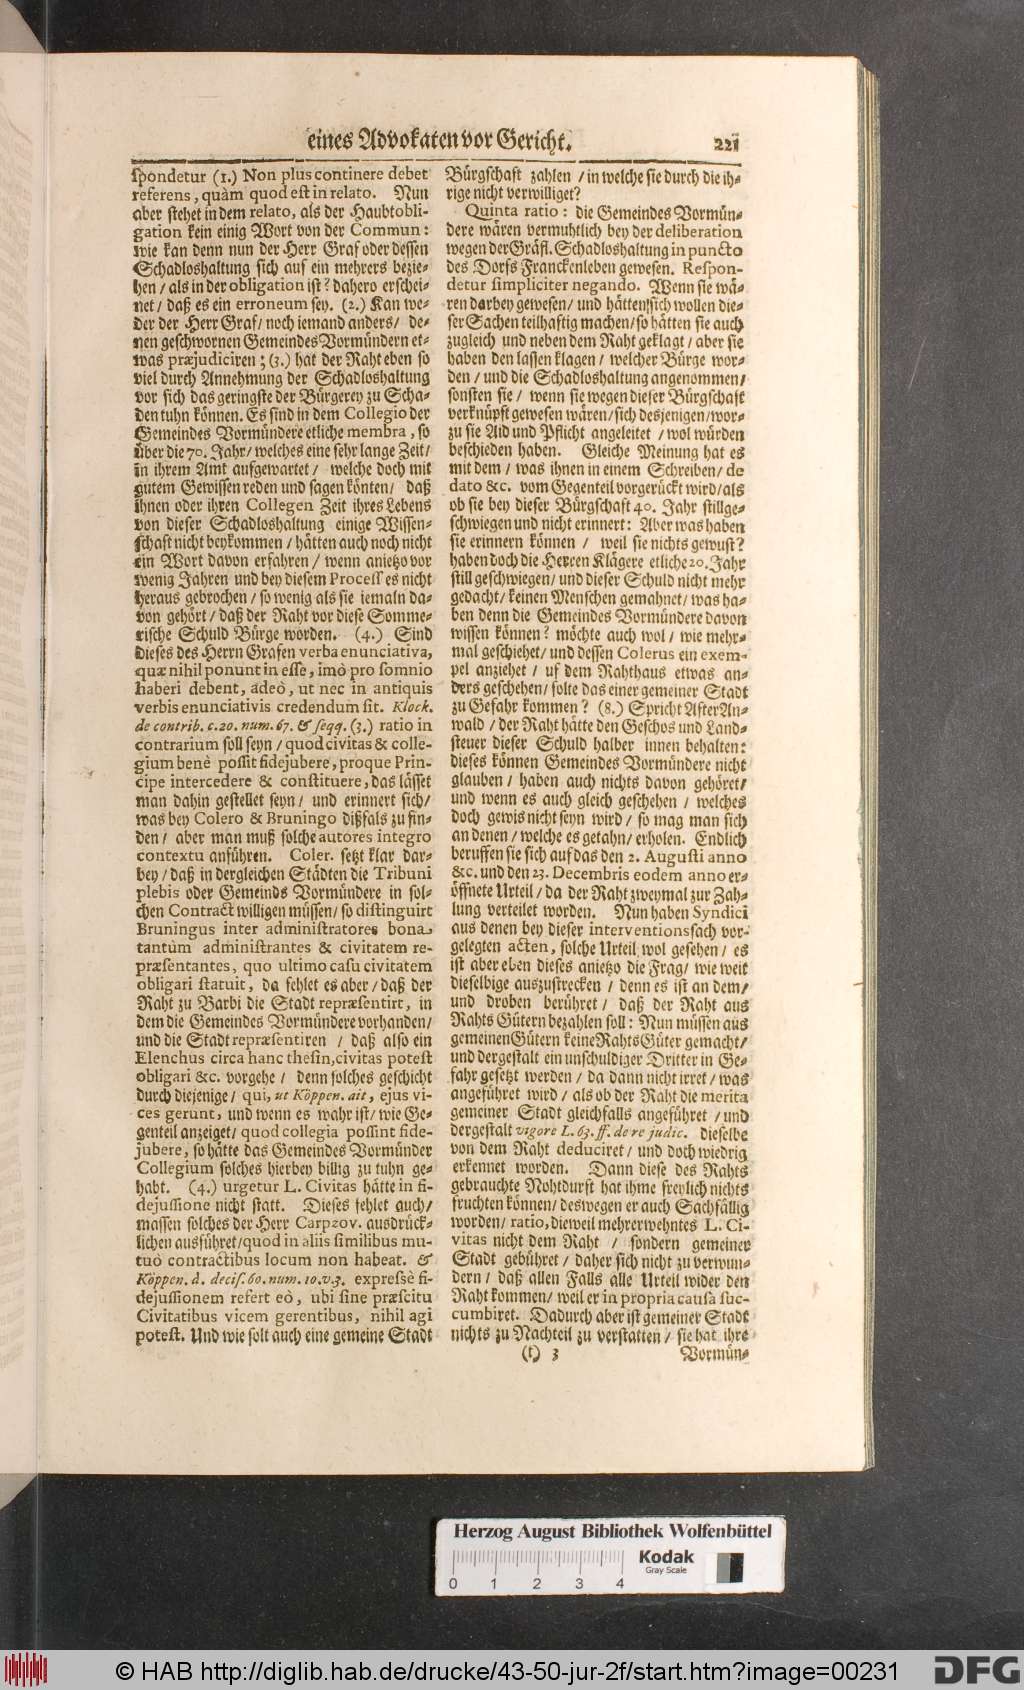 eines Advokaten vor Gericht. 221
spondetur (1.) Non plus continere debet
referens, quàm quod est in relato. Nun
aber stehet in dem relato, als der Haubtobli-
gation kein einig Wort von der Commun:
wie kan denn nun der Herr Graf oder dessen
Schadloshaltung sich auf ein mehrers bezie-
hen / als in der obligation ist? dahero erschei-
net / daß es ein erroneum sey. (2.) Kan we-
der der Herr Graf / noch iemand anders / de-
nen geschwornen Gemeindes Vormündern et-
was præjudiciren; (3.) hat der Raht eben so
viel durch Annehmung der Schadloshaltung
vor sich das geringste der Bürgerey zu Scha-
den tuhn können. Es sind in dem Collegio der
Gemeindes Vormündere etliche membra, so
über die 70. Jahr / welches eine sehr lange Zeit /
in ihrem Amt aufgewartet / welche doch mit
gutem Gewissen reden und sagen könten / daß
ihnen oder ihren Collegen Zeit ihres Lebens
von dieser Schadloshaltung einige Wissen-
schaft nicht beykommen / hätten auch noch nicht
ein Wort davon erfahren / wenn anietzo vor
wenig Jahren und bey diesem Process es nicht
heraus gebrochen / so wenig als sie iemaln da-
von gehört / daß der Raht vor diese Somme-
rische Schuld Bürge worden. (4.) Sind
dieses des Herrn Grafen verba enunciativa,
quæ nihil ponunt in esse, imò pro somnio
haberi debent, adeò, ut nec in antiquis
verbis enunciativis credendum sit. Klock.
de contrib. c. 20. num. 67. & seqq. (3.) ratio in
contrarium soll seyn / quod civitas & colle-
gium benè possit fidejubere, proque Prin-
cipe intercedere & constituere, das lässet
man dahin gestellet seyn / und erinnert sich /
was bey Colero & Bruningo dißfals zu fin-
den / aber man muß solche autores integro
contextu anführen. Coler. setzt klar dar-
bey / daß in dergleichen Städten die Tribuni
plebis oder Gemeinds Vormündere in sol-
chen Contract willigen müssen / so distinguirt
Bruningus inter administratores bona
tantùm administrantes & civitatem re-
præsentantes, quo ultimo casu civitatem
obligari statuit, da fehlet es aber / daß der
Raht zu Barbi die Stadt repræsentirt, in
dem die Gemeindes Vormündere vorhanden /
und die Stadt repræsentiren / daß also ein
Elenchus circa hanc thesin, civitas potest
obligari &c. vorgehe / denn solches geschicht
durch diejenige / qui, ut Köppen. ait, ejus vi-
ces gerunt, und wenn es wahr ist / wie Ge-
genteil anzeiget / quod collegia possint fide-
jubere, so hätte das Gemeindes Vormünder
Collegium solches hierbey billig zu tuhn ge-
habt. (4.) urgetur L. Civitas hätte in fi-
dejussione nicht statt. Dieses fehlet auch /
massen solches der Herr Carpzov. ausdrück-
lichen ausführet / quod in aliis similibus mu-
tuò contractibus locum non habeat. &
Köppen. d. decis. 60. num. 10. v. 3. expressè fi-
dejussionem refert eò, ubi sine præscitu
Civitatibus vicem gerentibus, nihil agi
potest. Und wie solt auch eine gemeine Stadt
Bürgschaft zahlen / in welche sie durch die ih-
rige nicht verwilliget?
Quinta ratio: die Gemeindes Vormün-
dere wären vermuhtlich bey der deliberation
wegen der Gräfl. Schadloshaltung in puncto
des Dorfs Franckenleben gewesen. Respon-
detur simpliciter negando. Wenn sie wä-
ren darbey gewesen / und hätten sich wollen die-
ser Sachen teilhaftig machen / so hätten sie auch
zugleich und neben dem Raht geklagt / aber sie
haben den lassen klagen / welcher Bürge wor-
den / und die Schadloshaltung angenommen /
sonsten sie / wenn sie wegen dieser Bürgschaft
verknüpft gewesen wären / sich desjenigen / wor-
zu sie Aid und Pflicht angeleitet / wol würden
beschieden haben. Gleiche Meinung hat es
mit dem / was ihnen in einem Schreiben / de
dato &c. vom Gegenteil vorgerückt wird / als
ob sie bey dieser Bürgschaft 40. Jahr stillge-
schwiegen und nicht erinnert: Aber was haben
sie erinnern können / weil sie nichts gewust?
haben doch die Herren Klägere etliche 20. Jahr
still geschwiegen / und dieser Schuld nicht mehr
gedacht / keinen Menschen gemahnet / was ha-
ben denn die Gemeindes Vormündere davon
wissen können? möchte auch wol / wie mehr-
mal geschiehet / und dessen Colerus ein exem-
pel anziehet / uf dem Rahthaus etwas an-
ders geschehen / solte das einer gemeiner Stadt
zu Gefahr kommen? (8.) Spricht AfterAn-
wald / der Raht hätte den Geschos und Land-
steuer dieser Schuld halber innen behalten:
dieses können Gemeindes Vormündere nicht
glauben / haben auch nichts davon gehöret /
und wenn es auch gleich geschehen / welches
doch gewis nicht seyn wird / so mag man sich
an denen / welche es getahn / erholen. Endlich
beruffen sie sich auf das den 2. Augusti anno
&c. und den 23. Decembris eodem anno er-
öffnete Urteil / da der Raht zweymal zur Zah-
lung verteilet worden. Nun haben Syndici
aus denen bey dieser interventionssach vor-
gelegten acten, solche Urteil wol gesehen / es
ist aber eben dieses anietzo die Frag / wie weit
dieselbige auszustrecken / denn es ist an dem /
und droben berühret / daß der Raht aus
Rahts Gütern bezahlen soll: Nun müssen aus
gemeinen Gütern keine Rahts Güter gemacht /
und dergestalt ein unschuldiger Dritter in Ge-
fahr gesetzt werden / da dann nicht irret / was
angeführet wird / als ob der Raht die merita
gemeiner Stadt gleichfalls angeführet / und
dergestalt vigore L. 63. ff. de re judic. dieselbe
von dem Raht deduciret / und doch wiedrig
erkennet worden. Dann diese des Rahts
gebrauchte Nohtdurft hat ihme freylich nichts
fruchten können / deswegen er auch Sachfällig
worden / ratio, dieweil mehrerwehntes L. Ci-
vitas nicht dem Raht / sondern gemeiner
Stadt gebühret / daher sich nicht zu verwun-
dern / daß allen Falls alle Urteil wider den
Raht kommen / weil er in propria causa suc-
cumbiret. Dadurch aber ist gemeiner Stadt
nichts zu Nachteil zu verstatten / sie hat ihre
(f) 3 Vormün-
Herzog August Bibliothek Wolfenbüttel
0 1 2 3 4
Kodak
Gray Scale
© HAB http://diglib.hab.de/drucke/43-50-jur-2f/start.htm?image=00231
DFG